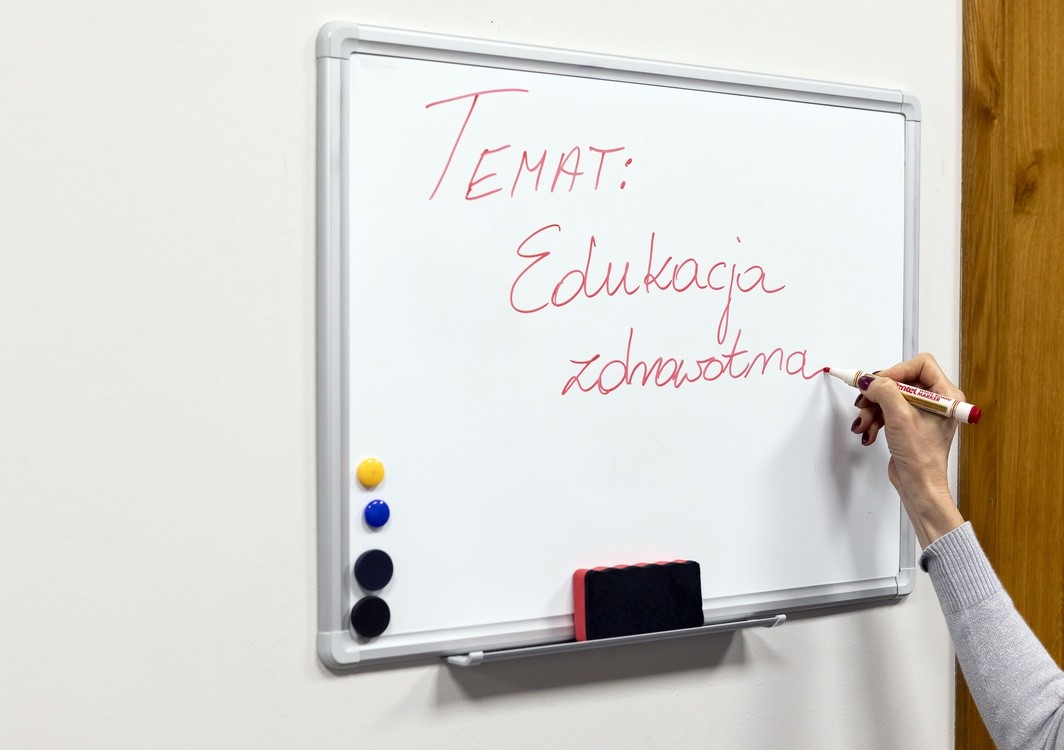 TEMAT:
Edukacja
zdrowotna
Pentel
MARKER